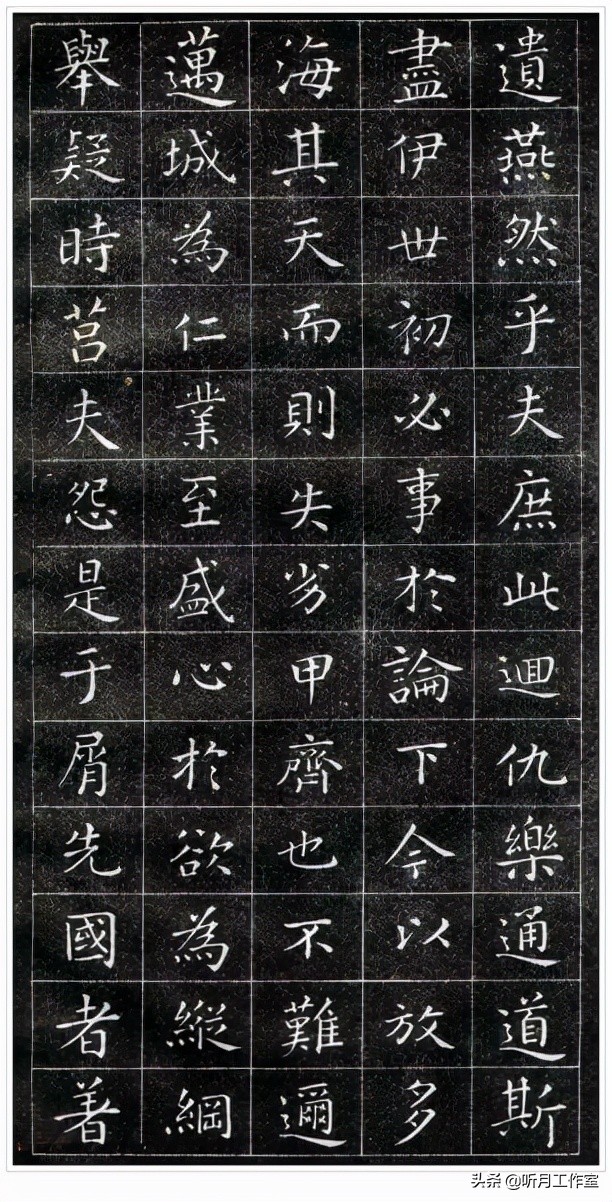 遺燕然乎夫庶此迴仇樂通道斯
盡伊世初必事於論下今以放多
海其天而則失劣甲齊也不難邇
邁城為仁業至盛心於欲為縱綱
舉疑時莒夫怨是于屑先國者著
头条 @听月工作室